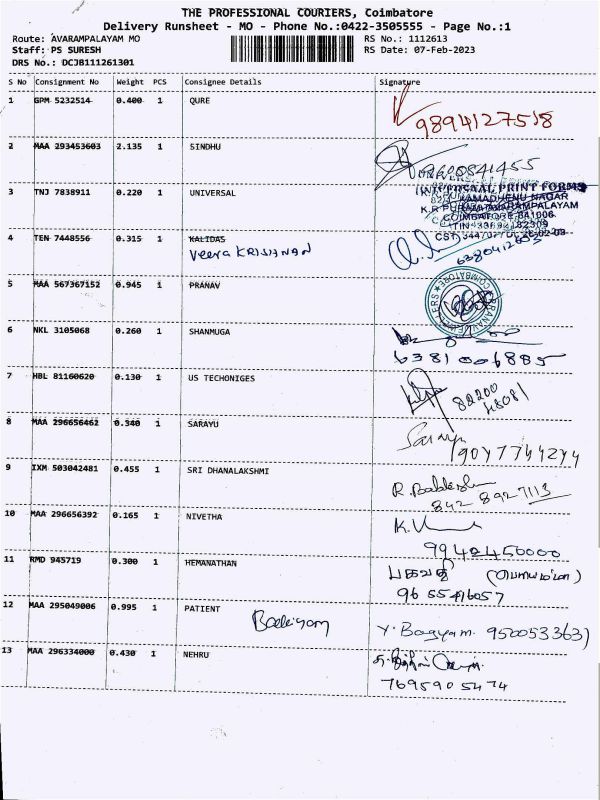 THE PROFESSIONAL COURIERS, Coimbatore
Delivery Runsheet - MO - Phone No.:0422-3505555 - Page No.:1
Route: AVARAMPALAYAM MO RS No.: 1112613
Staff: PS SURESH RS Date: 07-Feb-2023
DRS No.: DCJB111261301
S No Consignment No Weight PCS Consignee Details Signature
1 GPM 5232514 0.400 1 QURE
9894127518
2 MAA 293453603 2.135 1 SINDHU
9600841455
3 TNJ 7838911 0.220 1 UNIVERSAL
UNIVERSAL PRINT FORMS
KAMADHENU NAGAR
AVARAMPALAYAM
COIMBATORE-641006
4 TEN 7448556 0.315 1 KALIDAS
Veera KRISHNAN
6380412603
5 MAA 567367152 0.945 1 PRANAV
COIMBATORE
6 NKL 3105068 0.260 1 SHANMUGA
6381006885
7 HBL 81160620 0.130 1 US TECHONIGES
82200
48081
8 MAA 296656462 0.340 1 SARAYU
Sarayu
9047744274
9 IXM 503042481 0.455 1 SRI DHANALAKSHMI
842 8927113
10 MAA 296656392 0.165 1 NIVETHA
9942450000
11 RMD 945719 0.300 1 HEMANATHAN
பகவதி
9655416057
12 MAA 295049006 0.995 1 PATIENT
Backiyam Y. Bagyam. 9500533631
13 MAA 296334000 0.430 1 NEHRU
7695905474